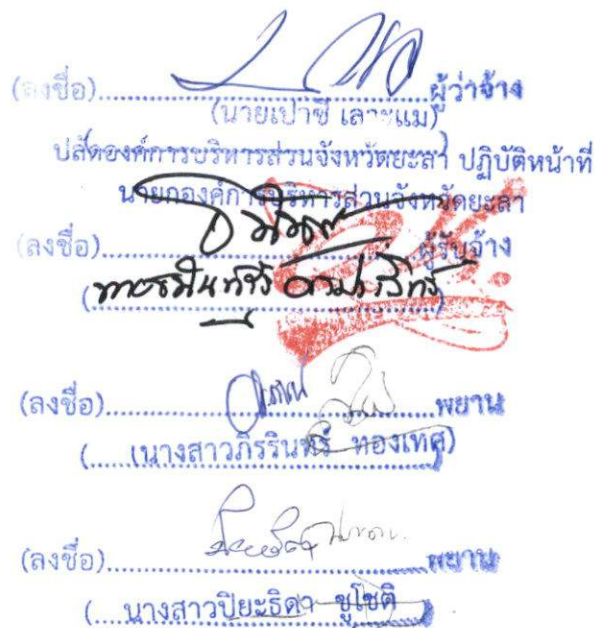 (ลงชื่อ)....................ผู้ว่าจ้าง
(นายเปาซี เลาะแม)
ปลัดองค์การบริหารส่วนจังหวัดยะลา ปฏิบัติหน้าที่
นายกองค์การบริหารส่วนจังหวัดยะลา
(ลงชื่อ)....................ผู้รับจ้าง
(....................)
(ลงชื่อ)....................พยาน
(....(นางสาวภิรรินทร์ ทองเทศ)
(ลงชื่อ)....................พยาน
(....นางสาวปิยะธิดา ชูโชติ....)